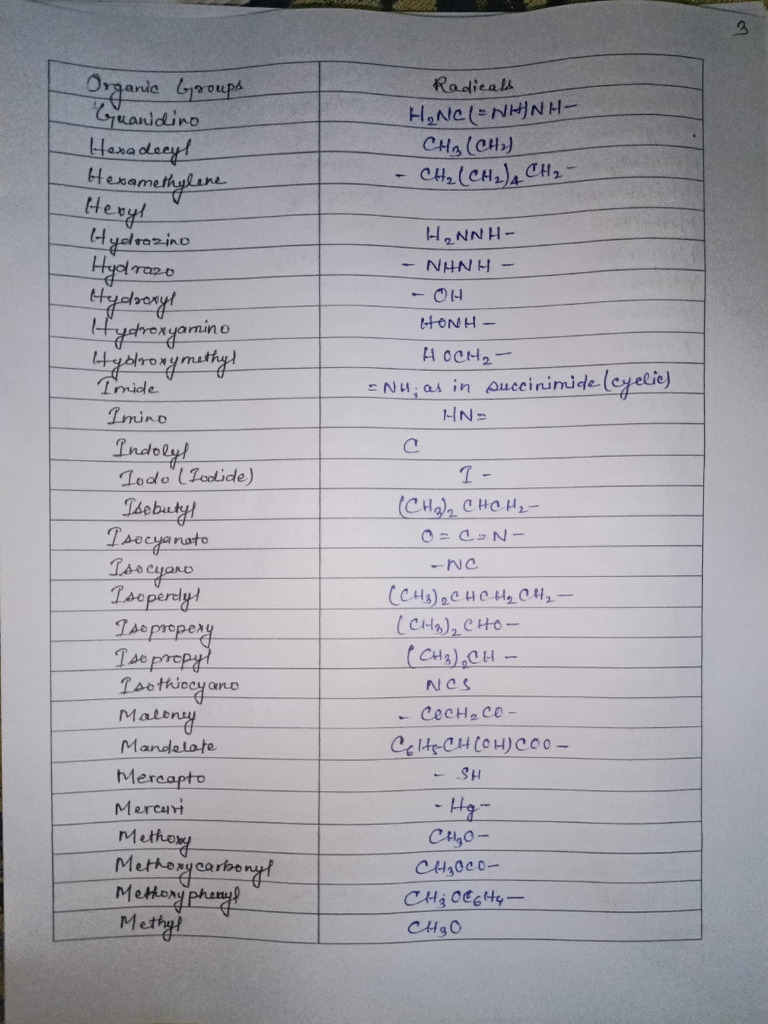 3
Organic Groups Radicals
Guanidino H₂NC(=NH)NH-
Hexadecyl CH₃(CH₂)
Hexamethylene - CH₂(CH₂)₄CH₂-
Hexyl
Hydrazino H₂NNH-
Hydrazo - NHNH -
Hydroxyl - OH
Hydroxyamino HONH -
Hydroxymethyl HOCH₂-
Imide =NH; as in succinimide (cyclic)
Imino HN=
Indolyl C
Iodo (Iodide) I -
Isobutyl (CH₃)₂CHCH₂-
Isocyanato O=C=N-
Isocyano -NC
(CH₃)₂CHCH₂CH₂-
Isopropexy (CH₃)₂CHO-
Isopropyl (CH₃)₂CH -
Isothiocyano NCS
Maloney - COCH₂CO-
Mandelate C₆H₅CH(OH)COO-
Mercapto - SH
Mercuri -Hg-
Methoxy CH₃O-
Methoxycarbonyl CH₃OCO-
Methoxyphenyl CH₃OC₆H₄-
Methyl CH₃O